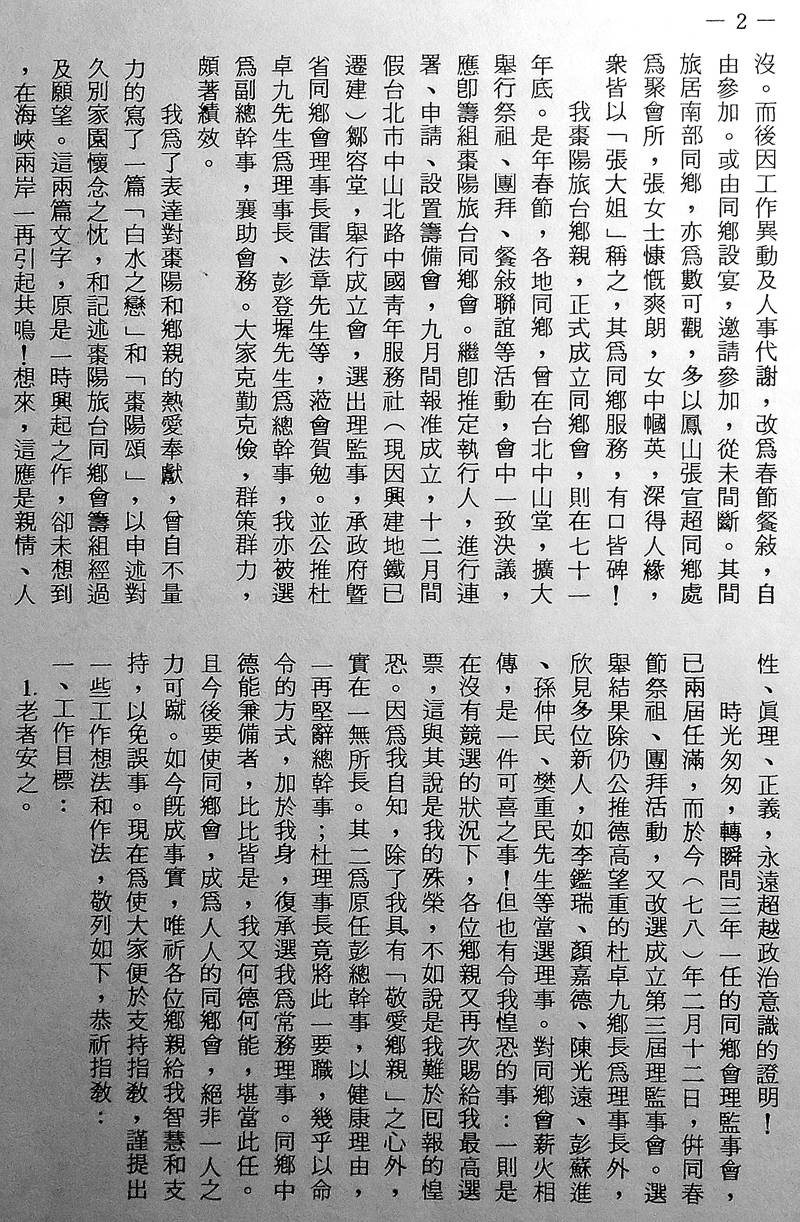 －2－
沒。而後因工作異動及人事代謝，改為春節餐敍，自
由參加。或由同鄉設宴，邀請參加，從未間斷。其間
旅居南部同鄉，亦為數可觀，多以鳳山張宜超同鄉處
為聚會所，張女士慷慨爽朗，女中幗英，深得人緣，
衆皆以「張大姐」稱之，其為同鄉服務，有口皆碑！
我棗陽旅台鄉親，正式成立同鄉會，則在七十一
年底。是年春節，各地同鄉，曾在台北中山堂，擴大
舉行祭祖、團拜、餐敍聯誼等活動，會中一致決議，
應卽籌組棗陽旅台同鄉會。繼卽推定執行人，進行連
署、申請、設置籌備會，九月間報准成立，十二月間
假台北市中山北路中國靑年服務社（現因興建地鐵已
遷建）鄒容堂，舉行成立會，選出理監事，承政府曁
省同鄉會理事長雷法章先生等，蒞會賀勉。並公推杜
卓九先生為理事長、彭登墀先生為總幹事，我亦被選
為副總幹事，襄助會務。大家克勤克儉，群策群力，
頗著績效。
我為了表達對棗陽和鄉親的熱愛奉獻，曾自不量
力的寫了一篇「白水之戀」和「棗陽頌」，以申述對
久別家園懷念之忱，和記述棗陽旅台同鄉會籌組經過
及願望。這兩篇文字，原是一時興起之作，卻未想到
，在海峽兩岸一再引起共鳴！想來，這應是親情、人
性、眞理、正義，永遠超越政治意識的證明！
時光匆匆，轉瞬間三年一任的同鄉會理監事會，
已兩屆任滿，而於今（七八）年二月十二日，倂同春
節祭祖、團拜活動，又改選成立第三屆理監事會。選
舉結果除仍公推德高望重的杜卓九鄉長為理事長外，
欣見多位新人，如李鑑瑞、顏嘉德、陳光遠、彭蘇進
、孫仲民、樊重民先生等當選理事。對同鄉會薪火相
傳，是一件可喜之事！但也有令我惶恐的事：一則是
在沒有競選的狀況下，各位鄉親又再次賜給我最高選
票，這與其說是我的殊榮，不如說是我難於囘報的惶
恐。因為我自知，除了我具有「敬愛鄉親」之心外，
實在一無所長。其二為原任彭總幹事，以健康理由，
一再堅辭總幹事；杜理事長竟將此一要職，幾乎以命
令的方式，加於我身，復承選我為常務理事。同鄉中
德能兼備者，比比皆是，我又何德何能，堪當此任。
且今後要使同鄉會，成為人人的同鄉會，絕非一人之
力可蹴。如今旣成事實，唯祈各位鄉親給我智慧和支
持，以免誤事。現在為使大家便於支持指敎，謹提出
一些工作想法和作法，敬列如下，恭祈指敎：
一、工作目標：
1.老者安之。